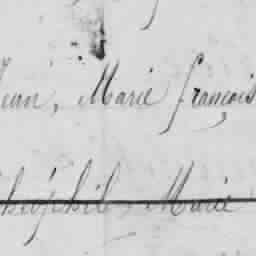 Jean, Marie françois
Théophile Marie